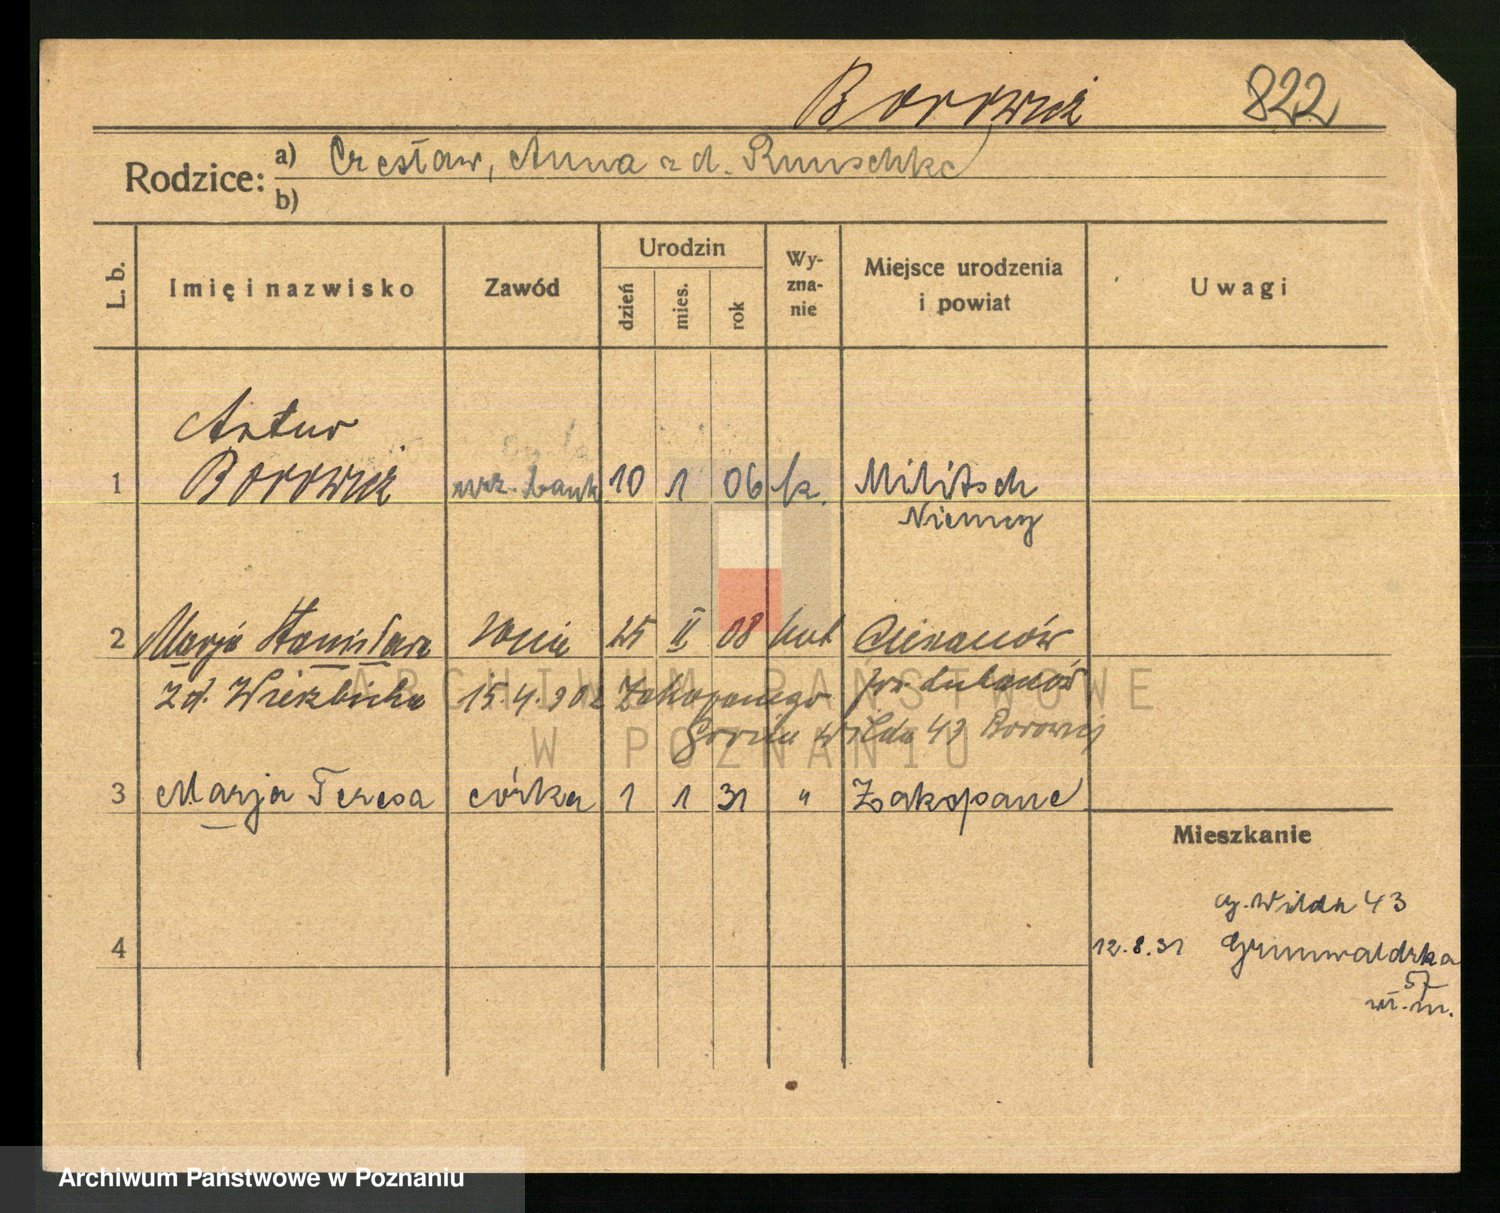 Borowicz 822
Rodzice: a) Czesław, Anna z d. Runschke
b)
L. b. Imię i nazwisko Zawód Urodzin dzień mies. rok Wy-zna-nie Miejsce urodzenia i powiat Uwagi
Artur
1 Borowicz urz. bank 10 1 06 k. Militsch
Niemcy
2 Marja Stanisława żona 25 II 08 kat
z d. Wierzbicka 15.4.902 Zakopanego pow. Lubaców
Górna Wilda 43 Borowicz
3 Marja Teresa córka 1 1 31 " Zakopane
Mieszkanie
g. Wilda 43
4 12.8.31 Grunwaldzka
57
wł. m.
ARCHIWUM PAŃSTWOWE
W POZNANIU
Archiwum Państwowe w Poznaniu